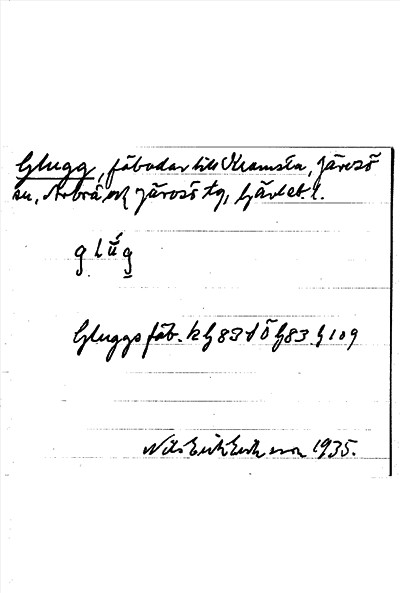 Glugg, fäbodar till Kramsta, Järvsö
sn, Arbrå och Järvsö tg, Gävleb. l.
glúg
Gluggs fäb. k G 83 d Ö G 83 G 109
Nils Erik Eriksson 1935.